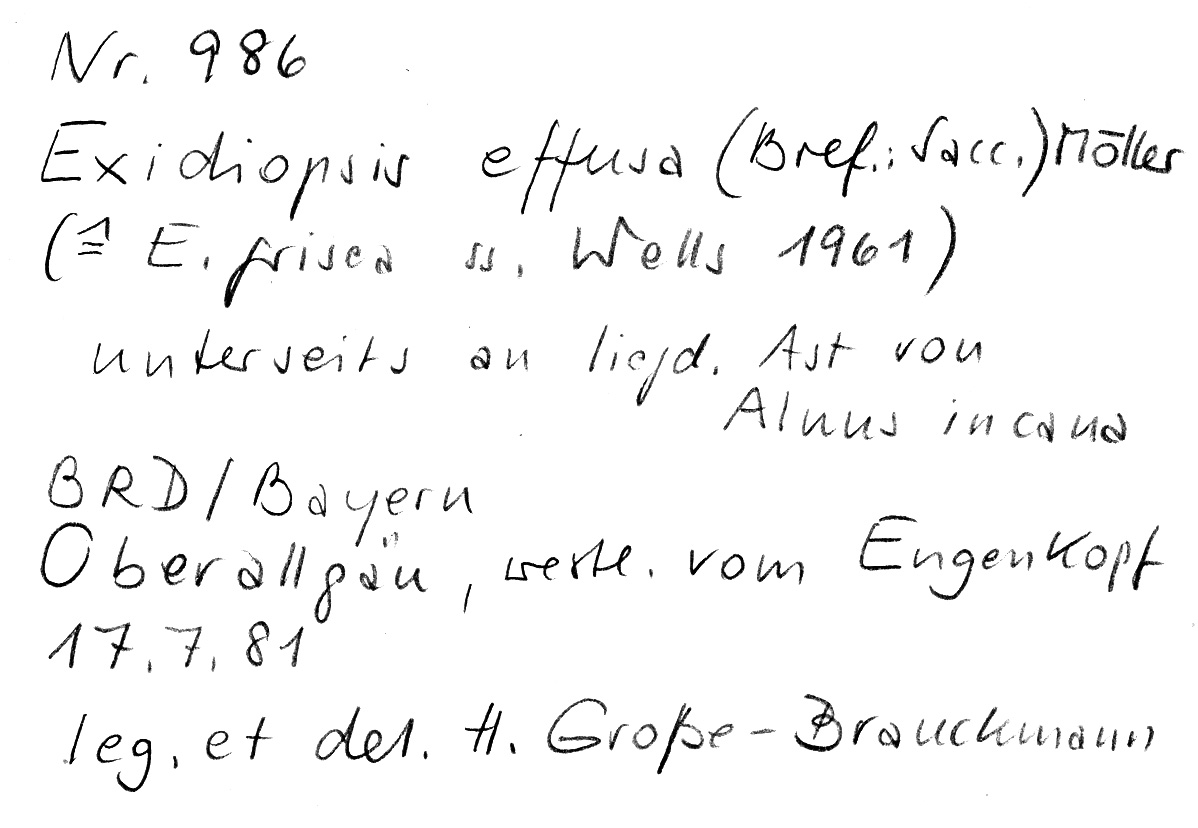 Nr. 986
Exidiopsis effusa (Bref.: Sacc.) Möller
(≙ E. grisea ss. Wells 1961)
unterseits an liegd. Ast von
Alnus incana
BRD/Bayern
Oberallgäu, westl. vom Engenkopf
17.7.81
leg. et det. H. Große-Brauckmann